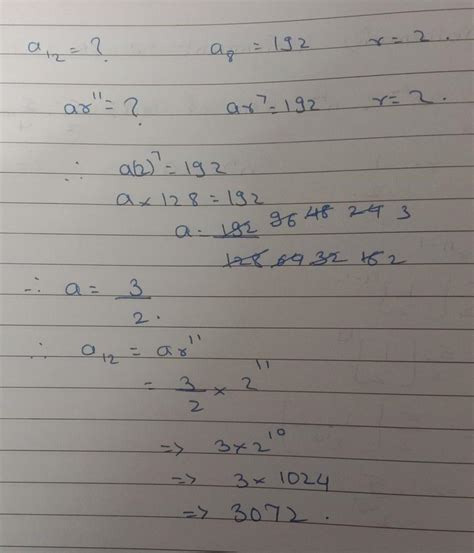 a₁₂ = ? a₈ = 192 r = 2 .
ar¹¹ = ? ar⁷ = 192 r = 2 .
∴ a(2)⁷ = 192
a × 128 = 192
a = 192 96 48 24 3
128 64 32 16 2
∴ a = 3
2 .
∴ a₁₂ = ar¹¹
= 3/2 × 2¹¹
=> 3 × 2¹⁰
=> 3 × 1024
=> 3072 .